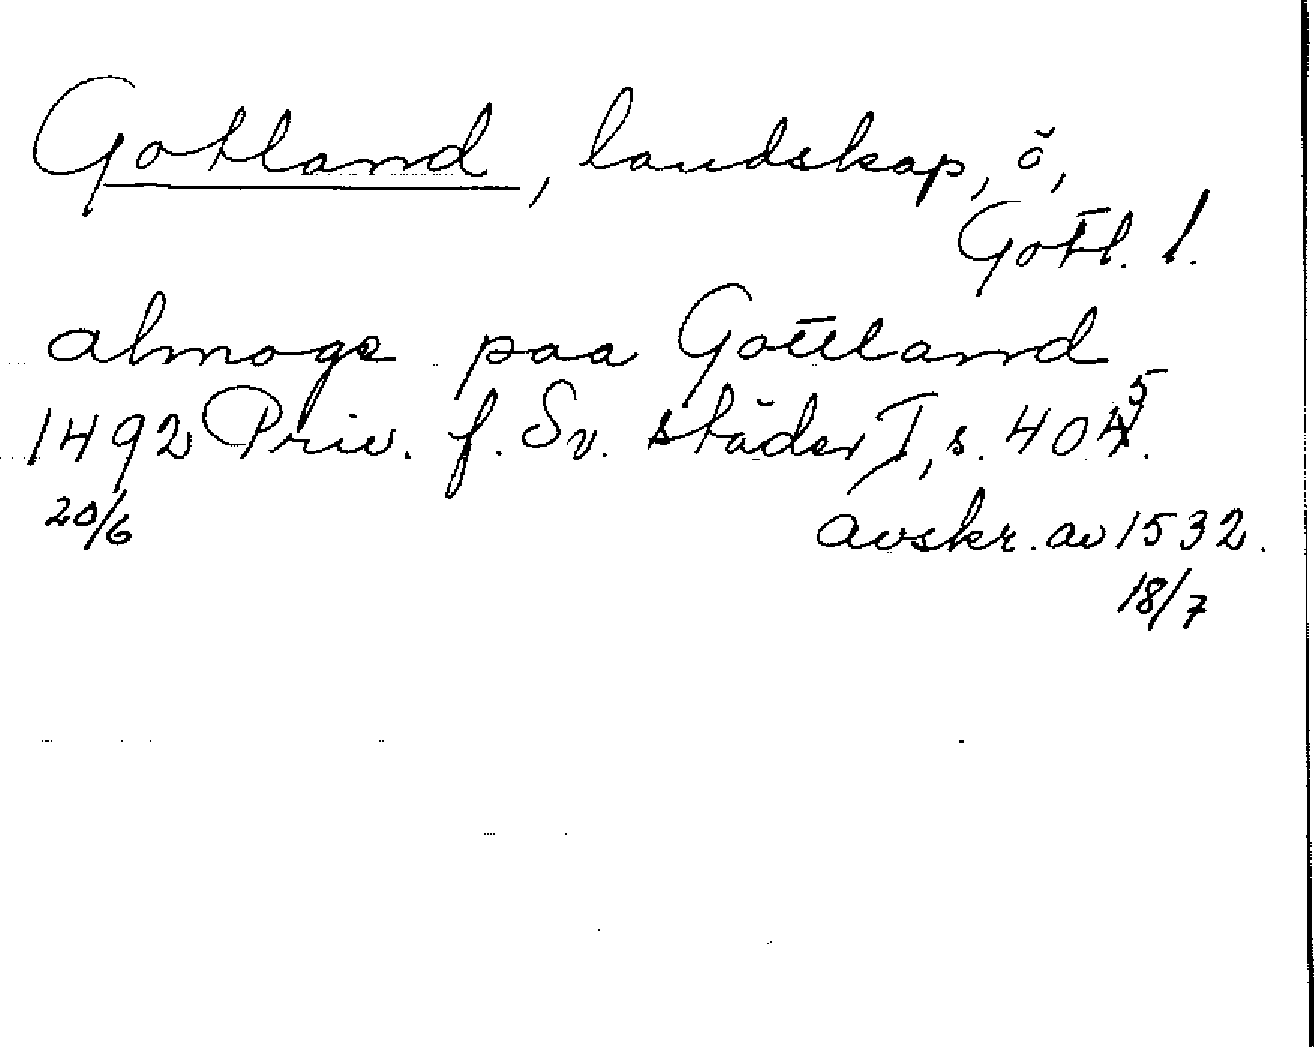 Gotland, landskap, ö,
Gotl. l.
almoge paa Gottland
1492 Priv. f. Sv. städer I, s. 405.
20/6 avskr. av 1532.
18/7